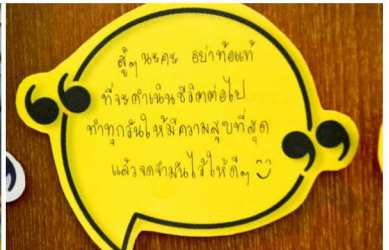 สู้ๆ นะคะ อย่าท้อแท้
ที่จะดำเนินชีวิตต่อไป
ทำทุกวันให้มีความสุขที่สุด
แล้วจดจำมันไว้ให้ดีๆ